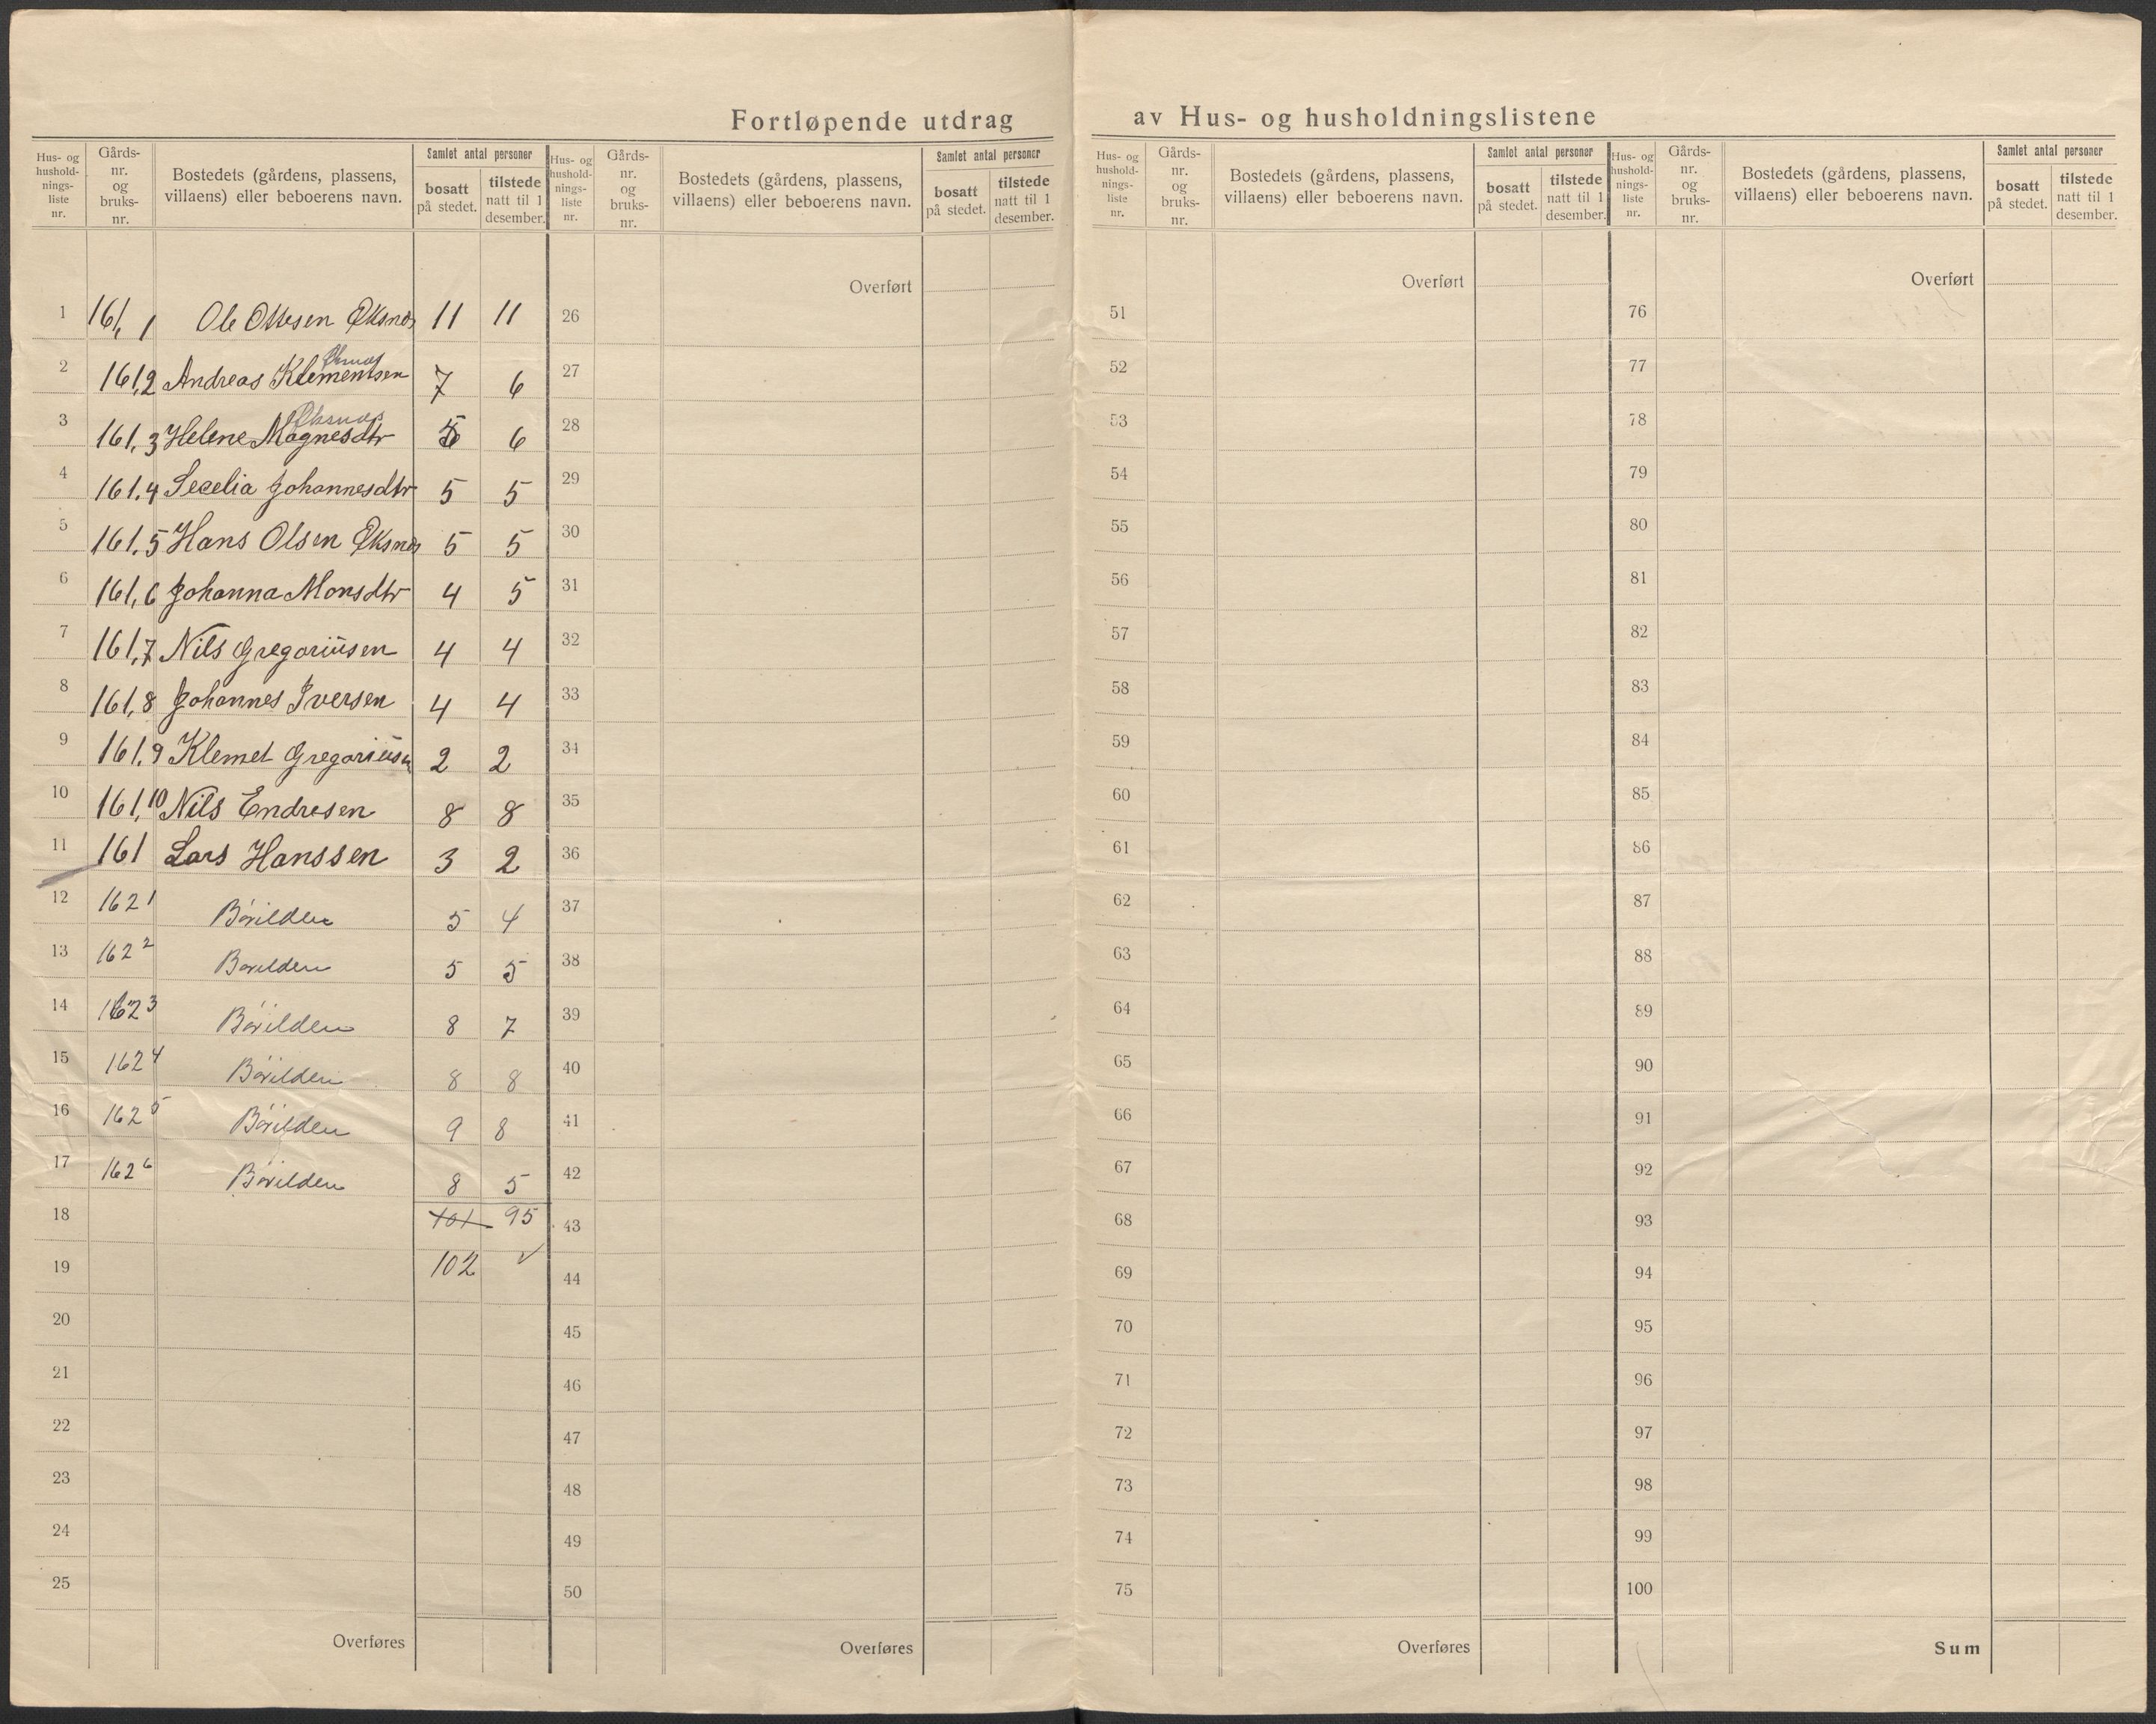 Fortløpende utdrag av Hus- og husholdningslistene
Hus- og hushold-nings-liste nr. Gårds-nr. og bruks-nr. Bostedets (gårdens, plassens, villaens) eller beboerens navn. Samlet antal personer bosatt på stedet. tilstede natt til 1 desember.
Hus- og hushold-nings-liste nr. Gårds-nr. og bruks-nr. Bostedets (gårdens, plassens, villaens) eller beboerens navn. Samlet antal personer bosatt på stedet. tilstede natt til 1 desember.
Hus- og hushold-nings-liste nr. Gårds-nr. og bruks-nr. Bostedets (gårdens, plassens, villaens) eller beboerens navn. Samlet antal personer bosatt på stedet. tilstede natt til 1 desember.
Hus- og hushold-nings-liste nr. Gårds-nr. og bruks-nr. Bostedets (gårdens, plassens, villaens) eller beboerens navn. Samlet antal personer bosatt på stedet. tilstede natt til 1 desember.
1 161,1 Ole Ottesen Øksnes 11 11
2 161,2 Andreas Klementsen Øksnes 7 6
3 161,3 Helene Magnesdtr Øksnes 6
4 161,4 Secelia Johannesdtr 5 5
5 161,5 Hans Olsen Øksnes 5 5
6 161,6 Johanna Monsdtr 4 5
7 161,7 Nils Gregoriusen 4 4
8 161,8 Johannes Iversen 4 4
9 161,9 Klemet Gregoriusen 2 2
10 161,10 Nils Endresen 8 8
11 161 Lars Hanssen 3 2
12 162 1 Børilden 5 4
13 162 2 Børilden 5 5
14 162 3 Børilden 8 7
15 162 4 Børilden 8 8
16 162 5 Børilden 9 8
17 162 6 Børilden 8 5
18 101 95
19 102 ✓
20
21
22
23
24
25
Overføres
Overført
26
27
28
29
30
31
32
33
34
35
36
37
38
39
40
41
42
43
44
45
46
47
48
49
50
Overføres
Overført
51
52
53
54
55
56
57
58
59
60
61
62
63
64
65
66
67
68
69
70
71
72
73
74
75
Overføres
Overført
76
77
78
79
80
81
82
83
84
85
86
87
88
89
90
91
92
93
94
95
96
97
98
99
100
Sum